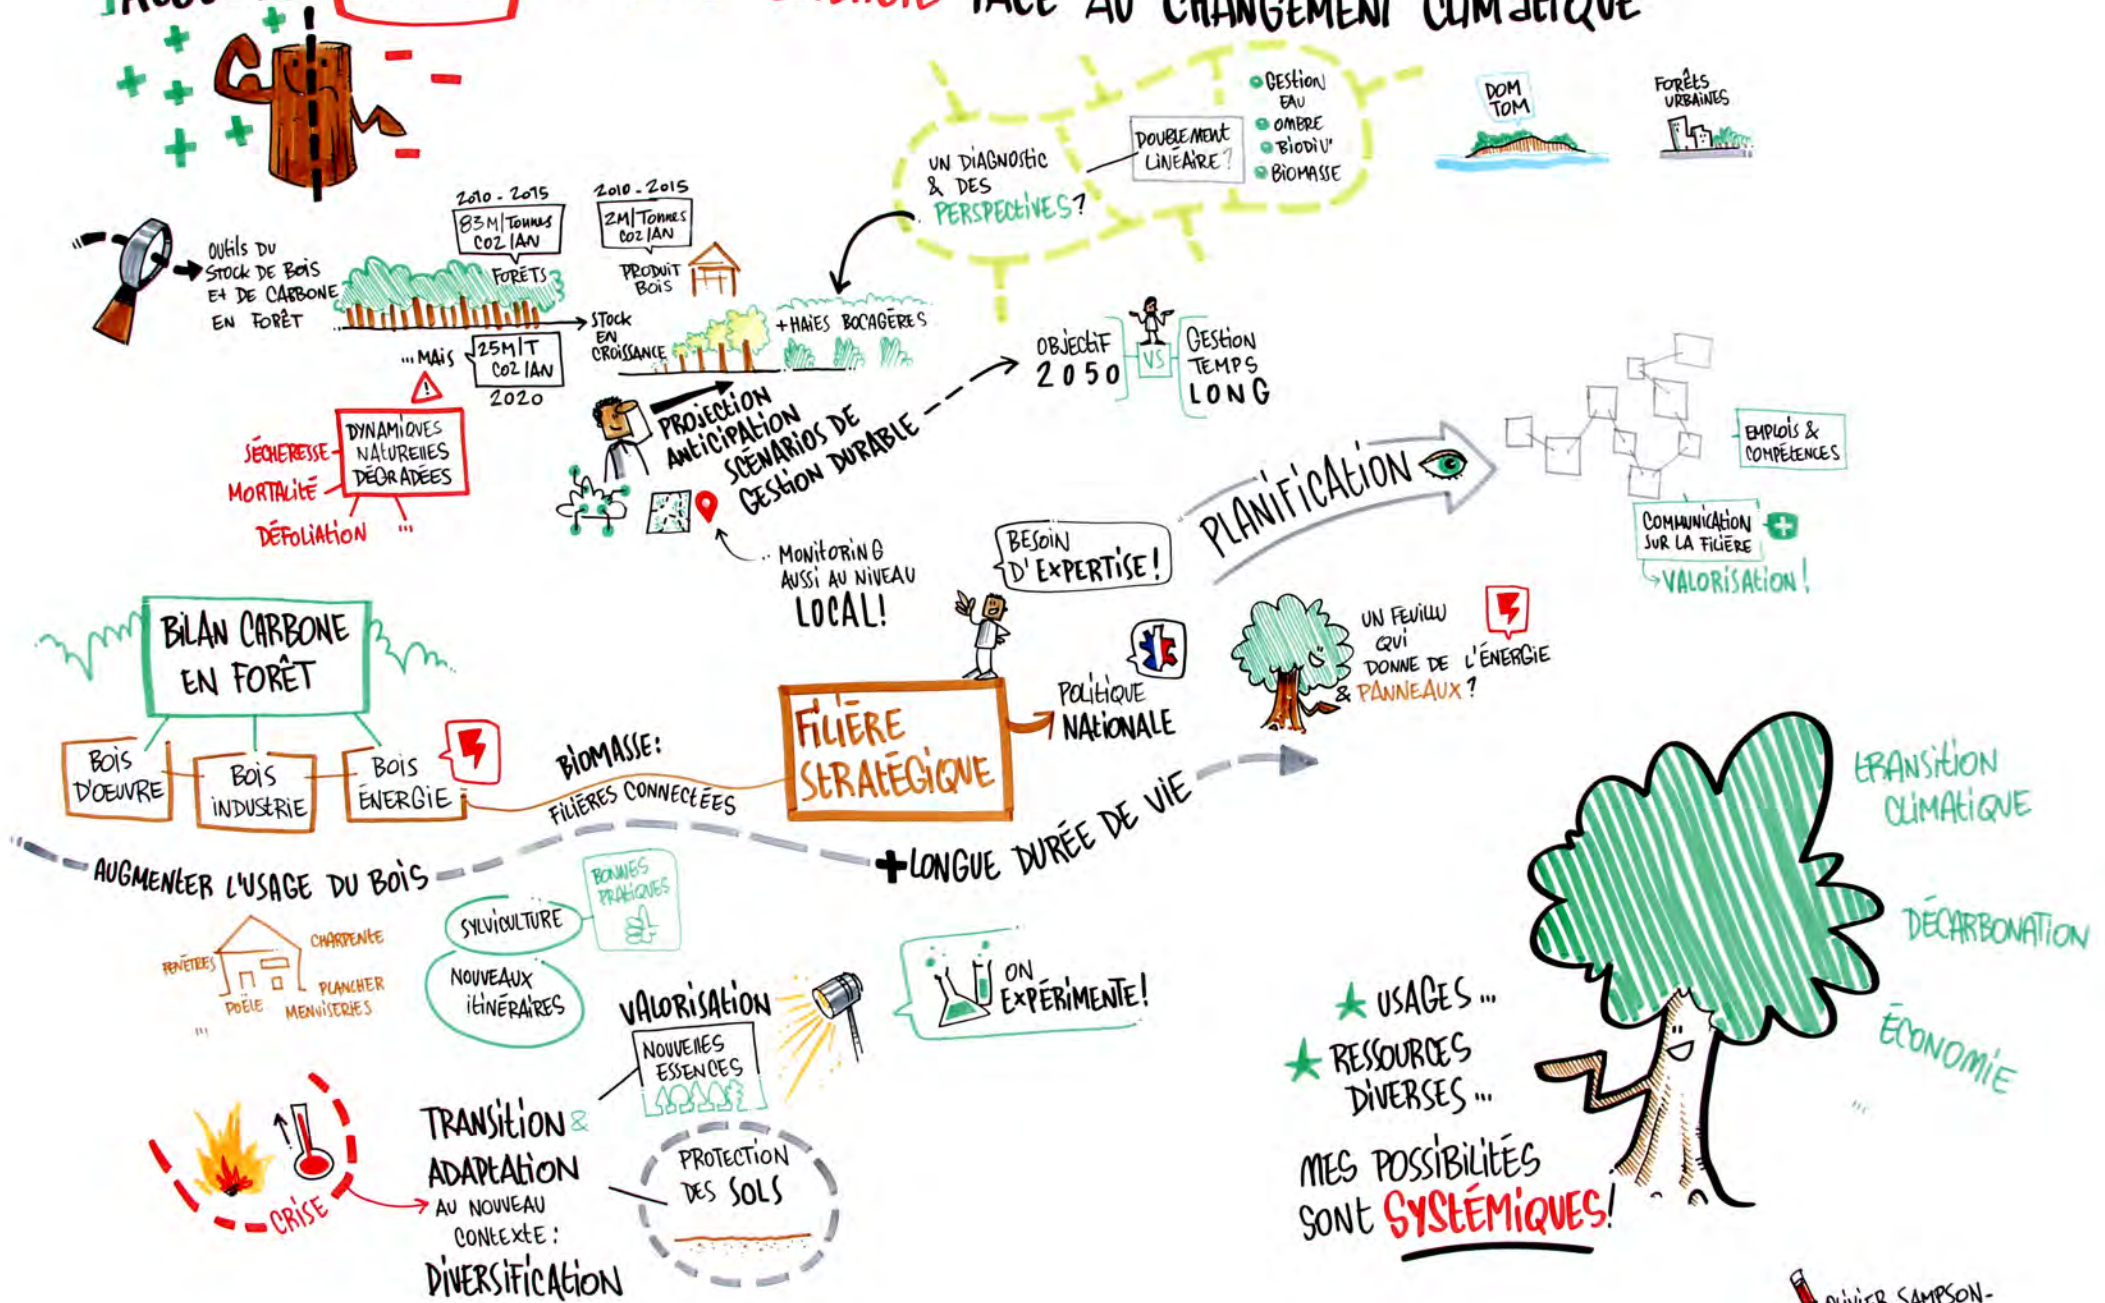 FACE AU CHANGEMENT CLIMATIQUE
UN DIAGNOSTIC
& DES
PERSPECTIVES?
DOUBLEMENT
LINÉAIRE?
GESTION
EAU
OMBRE
BIODIV'
BIOMASSE
DOM
TOM
FORÊTS
URBAINES
OUTILS DU
STOCK DE BOIS
ET DE CARBONE
EN FORÊT
2010-2015
83M/Tonnes
CO2/AN
FORÊTS
2010-2015
2M/Tonnes
CO2/AN
PRODUIT
BOIS
...MAIS
25M/T
CO2/AN
2020
STOCK
EN
CROISSANCE
+HAIES BOCAGÈRES
SÉCHERESSE
MORTALITÉ
DÉFOLIATION ...
DYNAMIQUES
NATURELLES
DÉGRADÉES
PROJECTION
ANTICIPATION
SCÉNARIOS DE
GESTION DURABLE
OBJECTIF
2050
VS
GESTION
TEMPS
LONG
.. MONITORING
AUSSI AU NIVEAU
LOCAL!
PLANIFICATION
EMPLOIS &
COMPÉTENCES
COMMUNICATION
SUR LA FILIÈRE
VALORISATION!
BILAN CARBONE
EN FORÊT
BOIS
D'OEUVRE
BOIS
INDUSTRIE
BOIS
ÉNERGIE
BIOMASSE:
FILIÈRES CONNECTÉES
BESOIN
D'EXPERTISE!
FILIÈRE
STRATÉGIQUE
POLITIQUE
NATIONALE
UN FEUILLU
QUI
DONNE DE L'ÉNERGIE
& PANNEAUX?
AUGMENTER L'USAGE DU BOIS
+LONGUE DURÉE DE VIE
FENÊTRES
CHARPENTE
PLANCHER
POÊLE
MENUISERIES
...
SYLVICULTURE
BONNES
PRATIQUES
NOUVEAUX
ITINÉRAIRES
VALORISATION
NOUVELLES
ESSENCES
ON
EXPÉRIMENTE!
CRISE
TRANSITION &
ADAPTATION
AU NOUVEAU
CONTEXTE:
DIVERSIFICATION
PROTECTION
DES SOLS
USAGES...
RESSOURCES
DIVERSES...
MES POSSIBILITÉS
SONT SYSTÉMIQUES!
TRANSITION
CLIMATIQUE
DÉCARBONATION
ÉCONOMIE
...
OLIVIER SAMPSON-